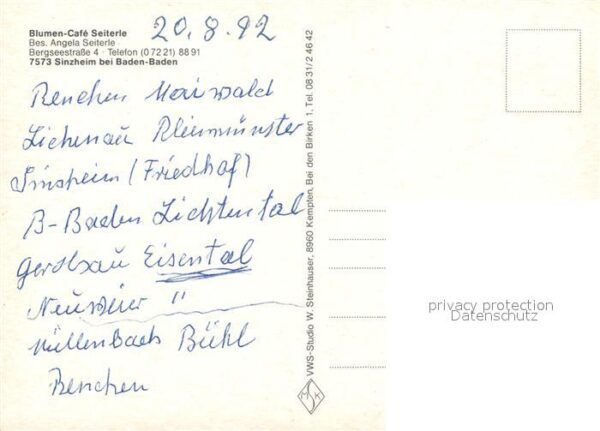 Blumen-Café Seiterle
Bes. Angela Seiterle
Bergseestraße 4 · Telefon (0 72 21) 88 91
7573 Sinzheim bei Baden-Baden
20.8.92
Renchen Maiwald
Lichenau Rheinmünster
Sinsheim (Friedhof)
B-Baden Lichtental
Gerolsau Eisental
Neuweier "
Müllenbach Bühl
Renchen
VWS-Studio W. Steinhauser, 8960 Kempten, Bei den Birken 1, Tel. 08 31/2 46 42
privacy protection
Datenschutz